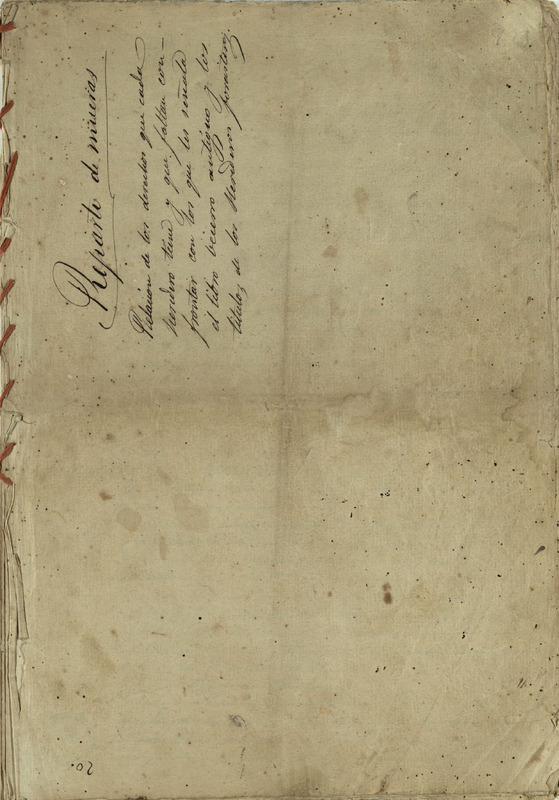 Reparto de mineras
Relacion de los derechos que cada
heredero tiene y que faltan con-
frontar con los que les señala
el libro becerro antiguo y los
titulos de los herederos
20.